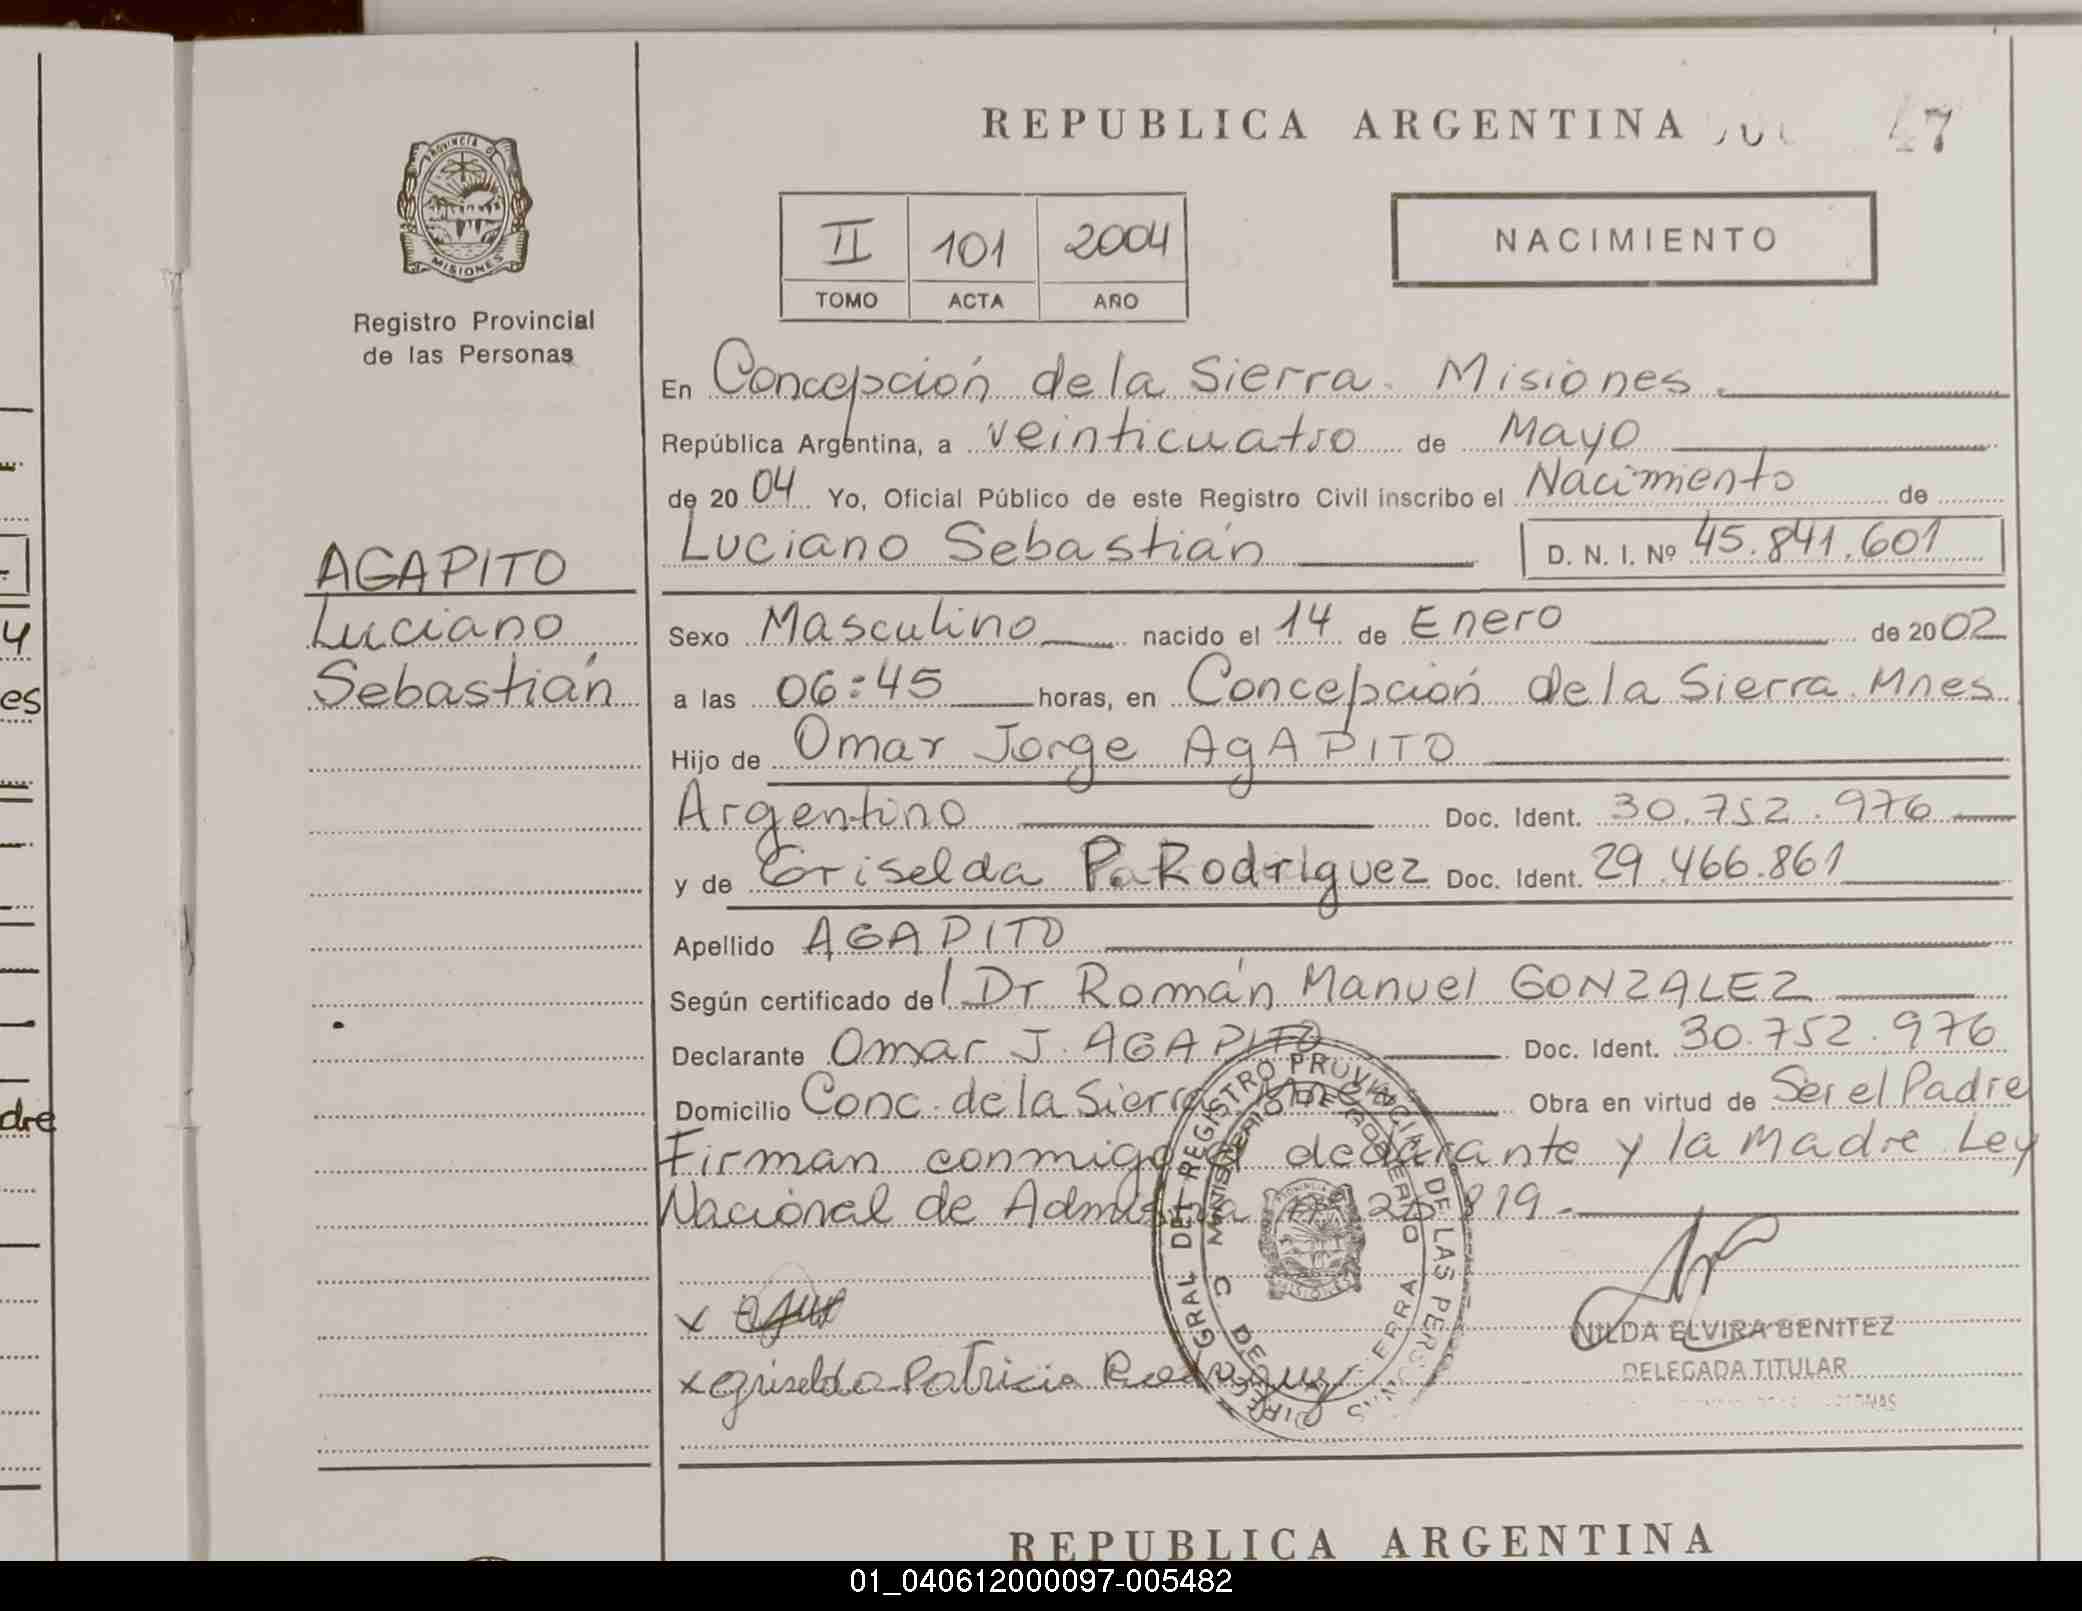 REPUBLICA ARGENTINA 47
PROVINCIA DE
MISIONES
Registro Provincial
de las Personas
II 101 2004
TOMO ACTA AÑO
NACIMIENTO
En Concepción de la Sierra. Misiones.
República Argentina, a veinticuatro de Mayo
de 20 04 Yo, Oficial Público de este Registro Civil inscribo el Nacimiento de
Luciano Sebastián D. N. I. Nº 45.841.601
AGAPITO
Luciano
Sebastián
Sexo Masculino nacido el 14 de Enero de 20 02
a las 06:45 horas, en Concepción de la Sierra. Mnes
Hijo de Omar Jorge AgAPITO
Argentino Doc. Ident. 30.752.976
y de Griselda Pa Rodriguez Doc. Ident. 29.466.861
Apellido AGAPITO
Según certificado del Dr Román Manuel GONZALEZ
Declarante Omar J. AGAPITO Doc. Ident. 30.752.976
Domicilio Conc. de la Sierra Mnes Obra en virtud de Ser el Padre
Firman conmigo el declarante y la Madre Ley
Nacional de Admistia Nº 25.819.
x
x Griselda Patricia Rodriguez
DIREC. GRAL. DEL REGISTRO PROVINCIAL DE LAS PERS
MINISTERIO DE GOBIERNO
C. DE LA SIERRA
MISIONES
NILDA ELVIRA BENITEZ
DELEGADA TITULAR
4
es
dre
REPUBLICA ARGENTINA
01_040612000097-005482